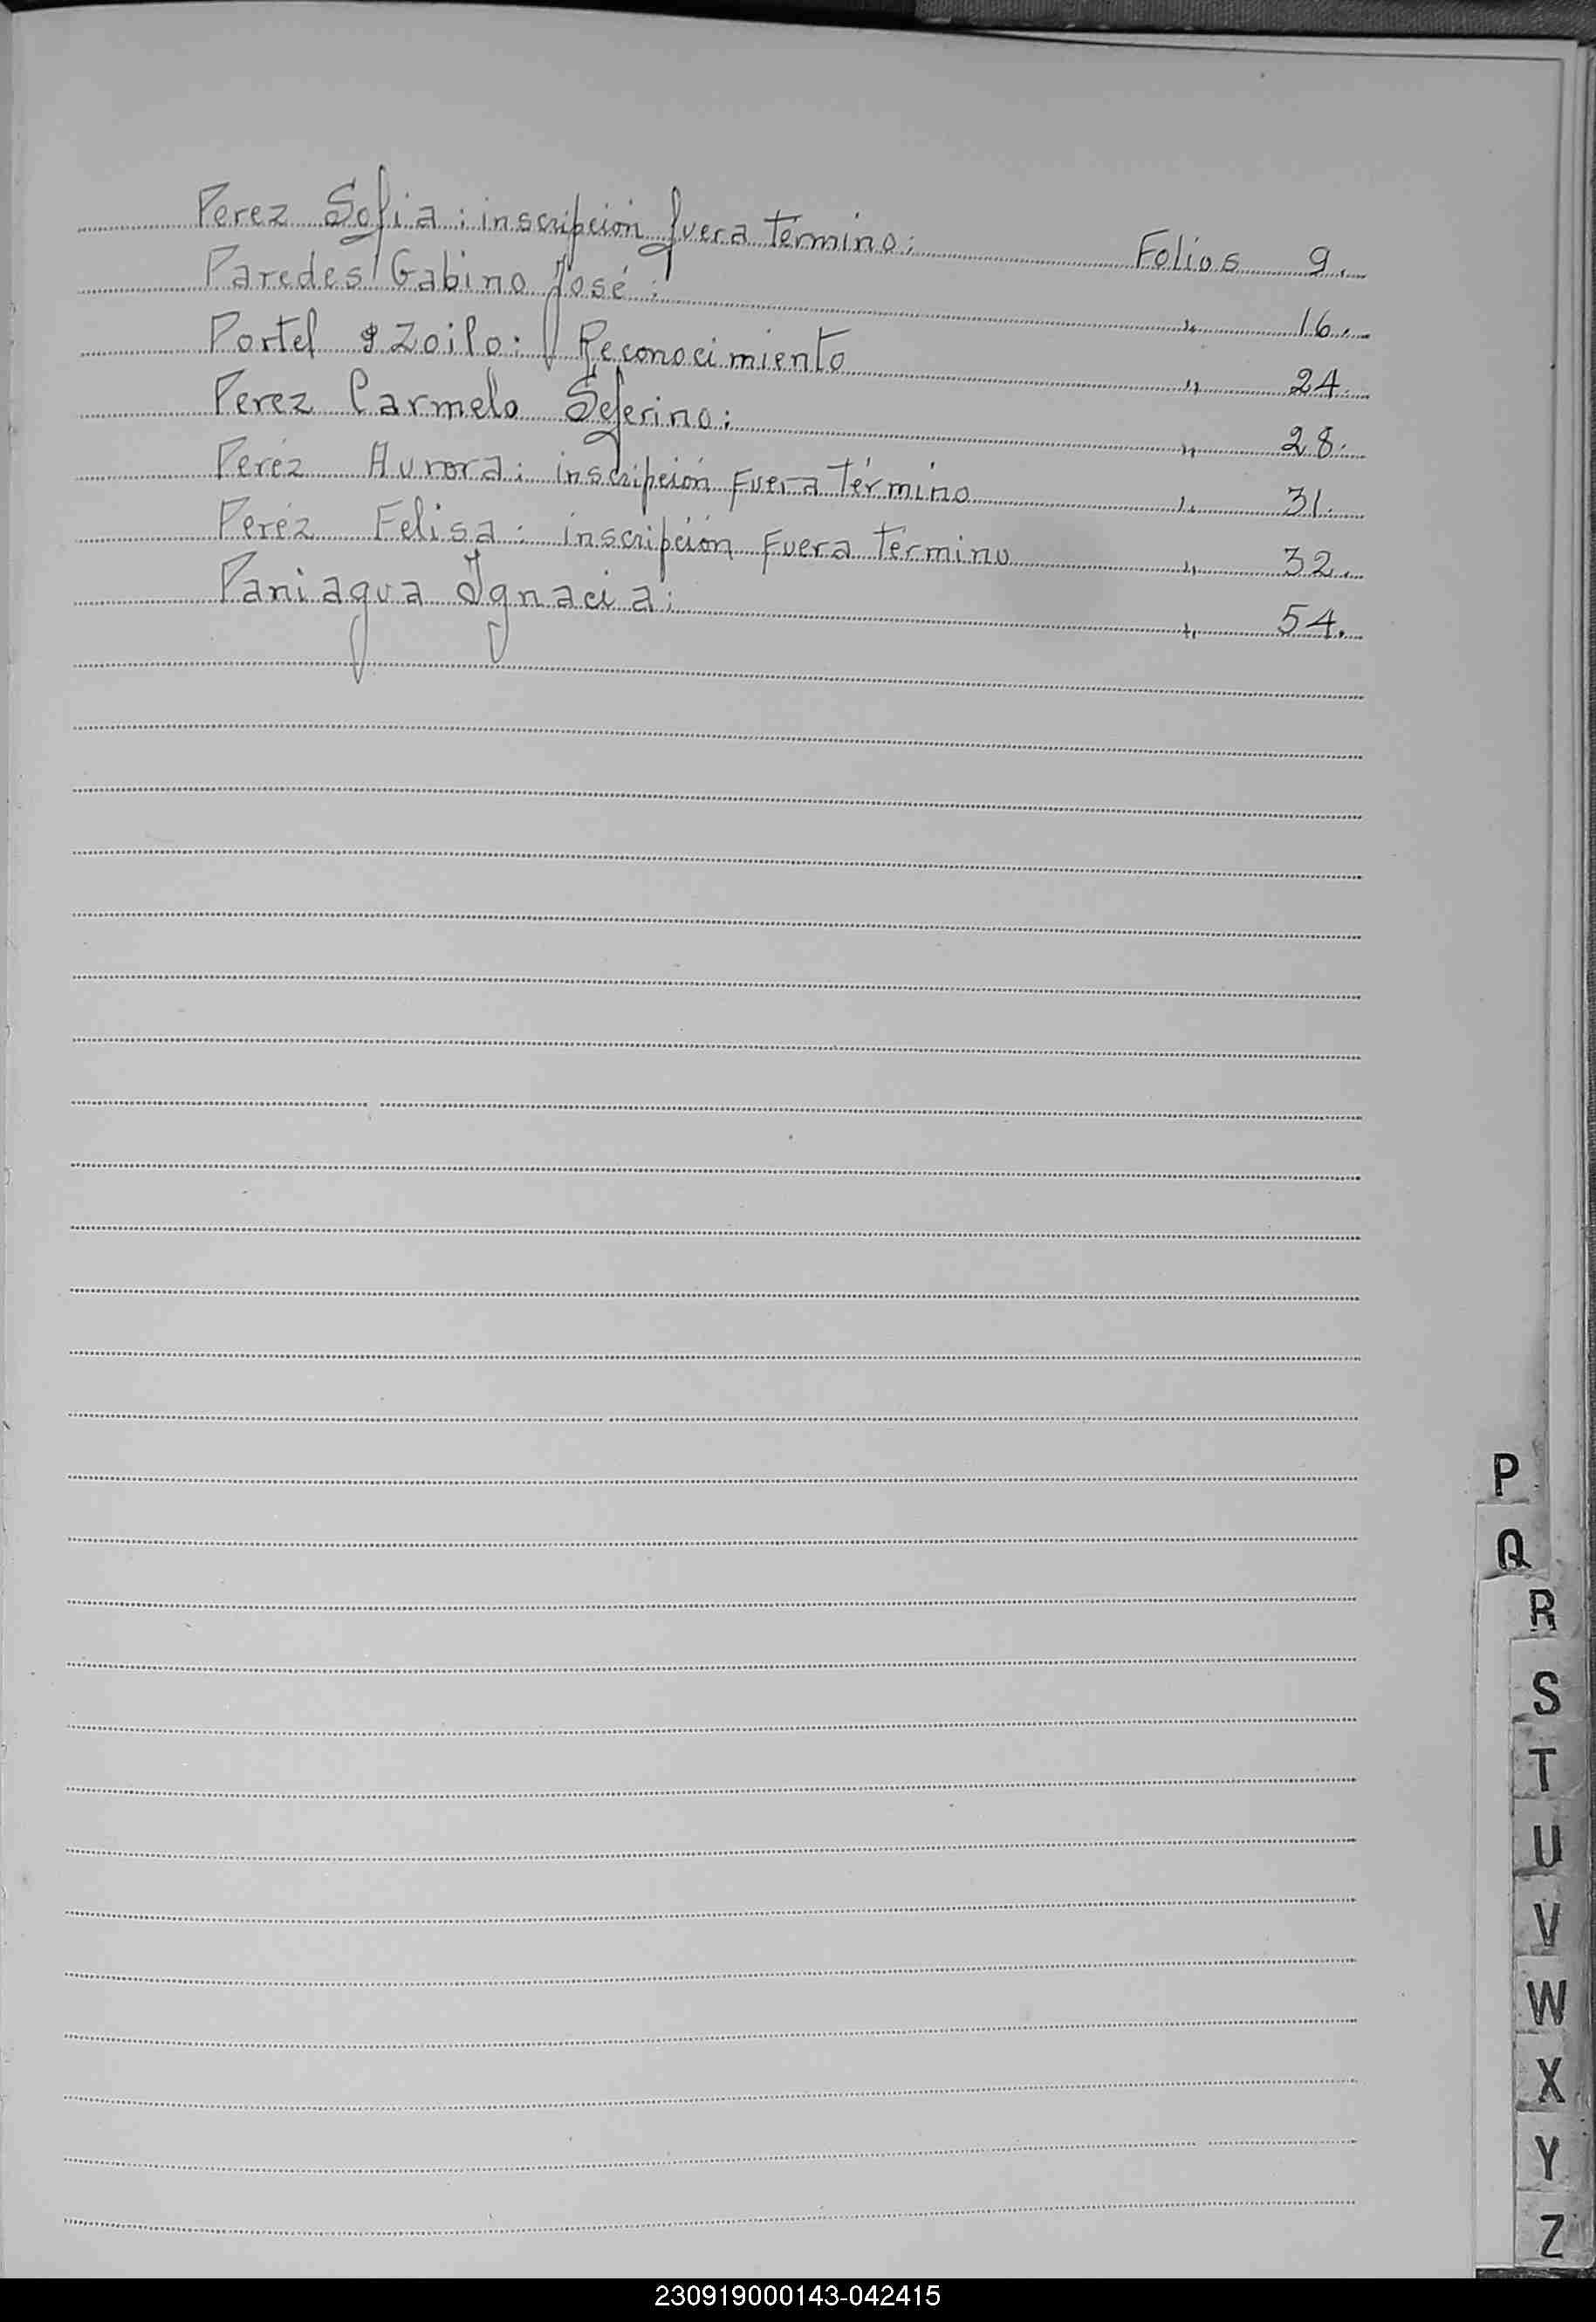 Perez Sofia: inscripción fuera término: Folios 9.
Paredes Gabino José: " 16.
Portel Zoilo: Reconocimiento " 24.
Perez Carmelo Seferino: " 28.
Peréz Aurora: inscripción Fuera Término " 31.
Peréz Felisa: inscripción Fuera término " 32.
Paniagua Ignacia: " 54.
P
Q
R
S
T
U
V
W
X
Y
Z
230919000143-042415